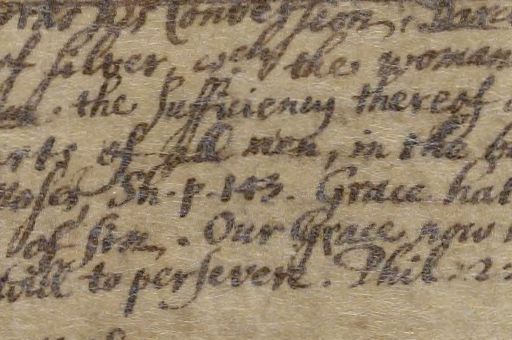 his Conversion,
of silver, wch the woman
the Sufficiency thereof
of all men, in the
Sh. p. 143. Grace
of sin, . Our Grace now
will to persevere. Phil. 2